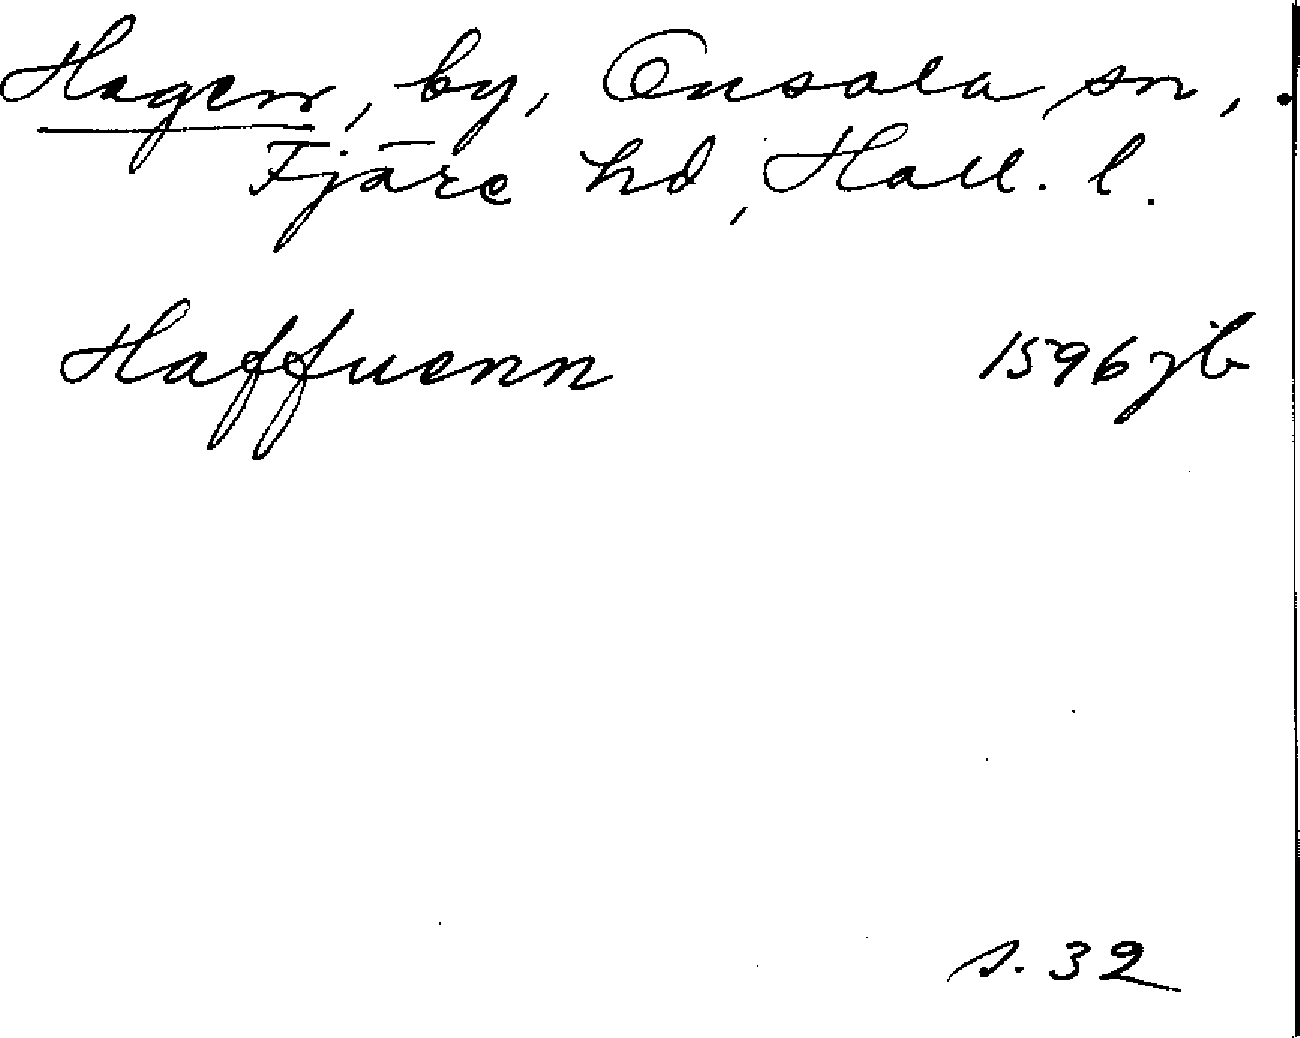 Hagen, by, Onsala sn,
Fjäre hd, Hall. l.
Haffuenn 1596 jb
s. 32